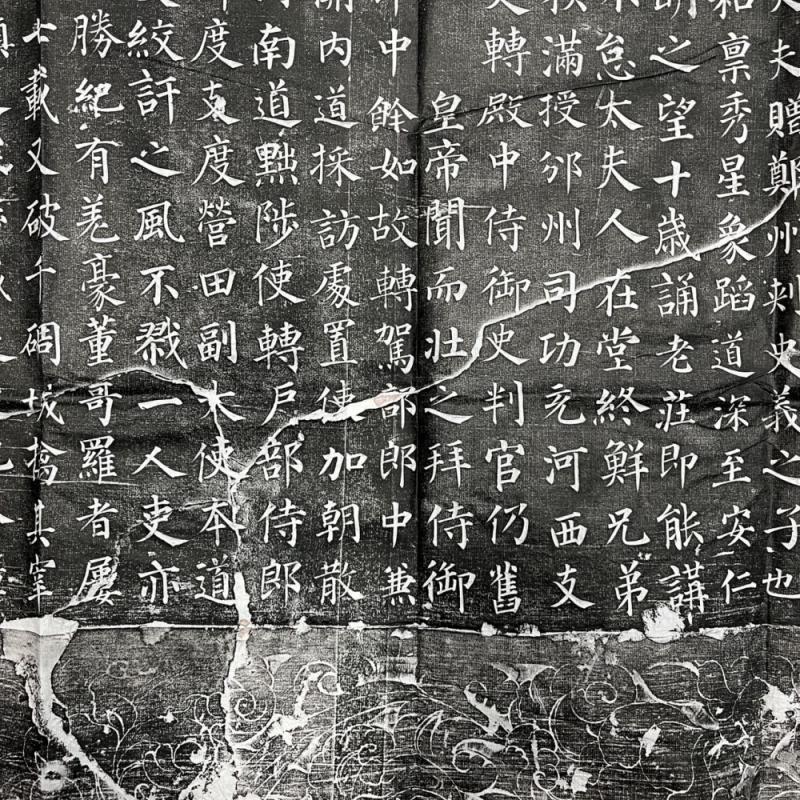 夫贈鄭州刾史義之子也
和禀秀星象蹈道深至安仁
之望十歳誦老莊即能講
不怠太夫人在堂終鮮兄弟
滿授邠州司功充河西支
轉殿中侍御史判官仍舊
皇帝聞而壯之拜侍御
中餘如故轉駕部郎中兼
內道採訪處置使加朝散
南道黜陟使轉戶部侍郎
度支度營田副大使本道
絞訐之風不戮一人吏亦
勝紀有羌豪董哥羅者屢
七載又破千碉城擒其宰